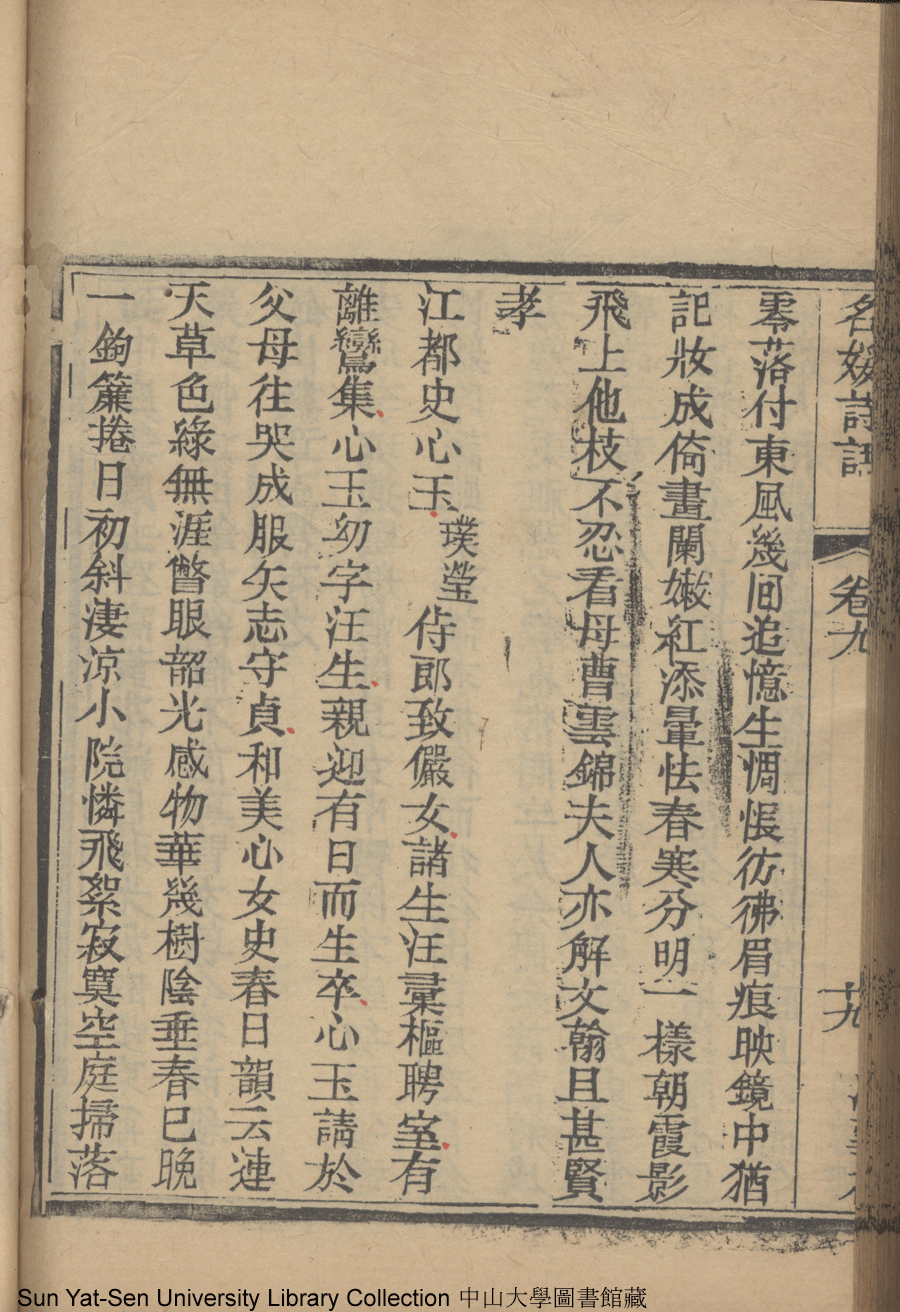 名媛詩話 卷九 十九
零落付東風幾囘追憶生惆悵彷彿眉痕映鏡中猶
記妝成倚畫闌嫩紅添暈怯春寒分明一樣朝霞影
飛上他枝不忍看母曹雲錦夫人亦解文翰且甚賢
孝
江都史心玉璞瑩侍郎致儼女諸生汪彙樞聘室有
離鸞集心玉幼字汪生親迎有日而生卒心玉請於
父母往哭成服矢志守貞和美心女史春日韻云連
天草色綠無涯瞥眼韶光感物華幾樹陰垂春已晚
一鉤簾捲日初斜淒涼小院憐飛絮寂寞空庭掃落
Sun Yat-Sen University Library Collection 中山大學圖書館藏